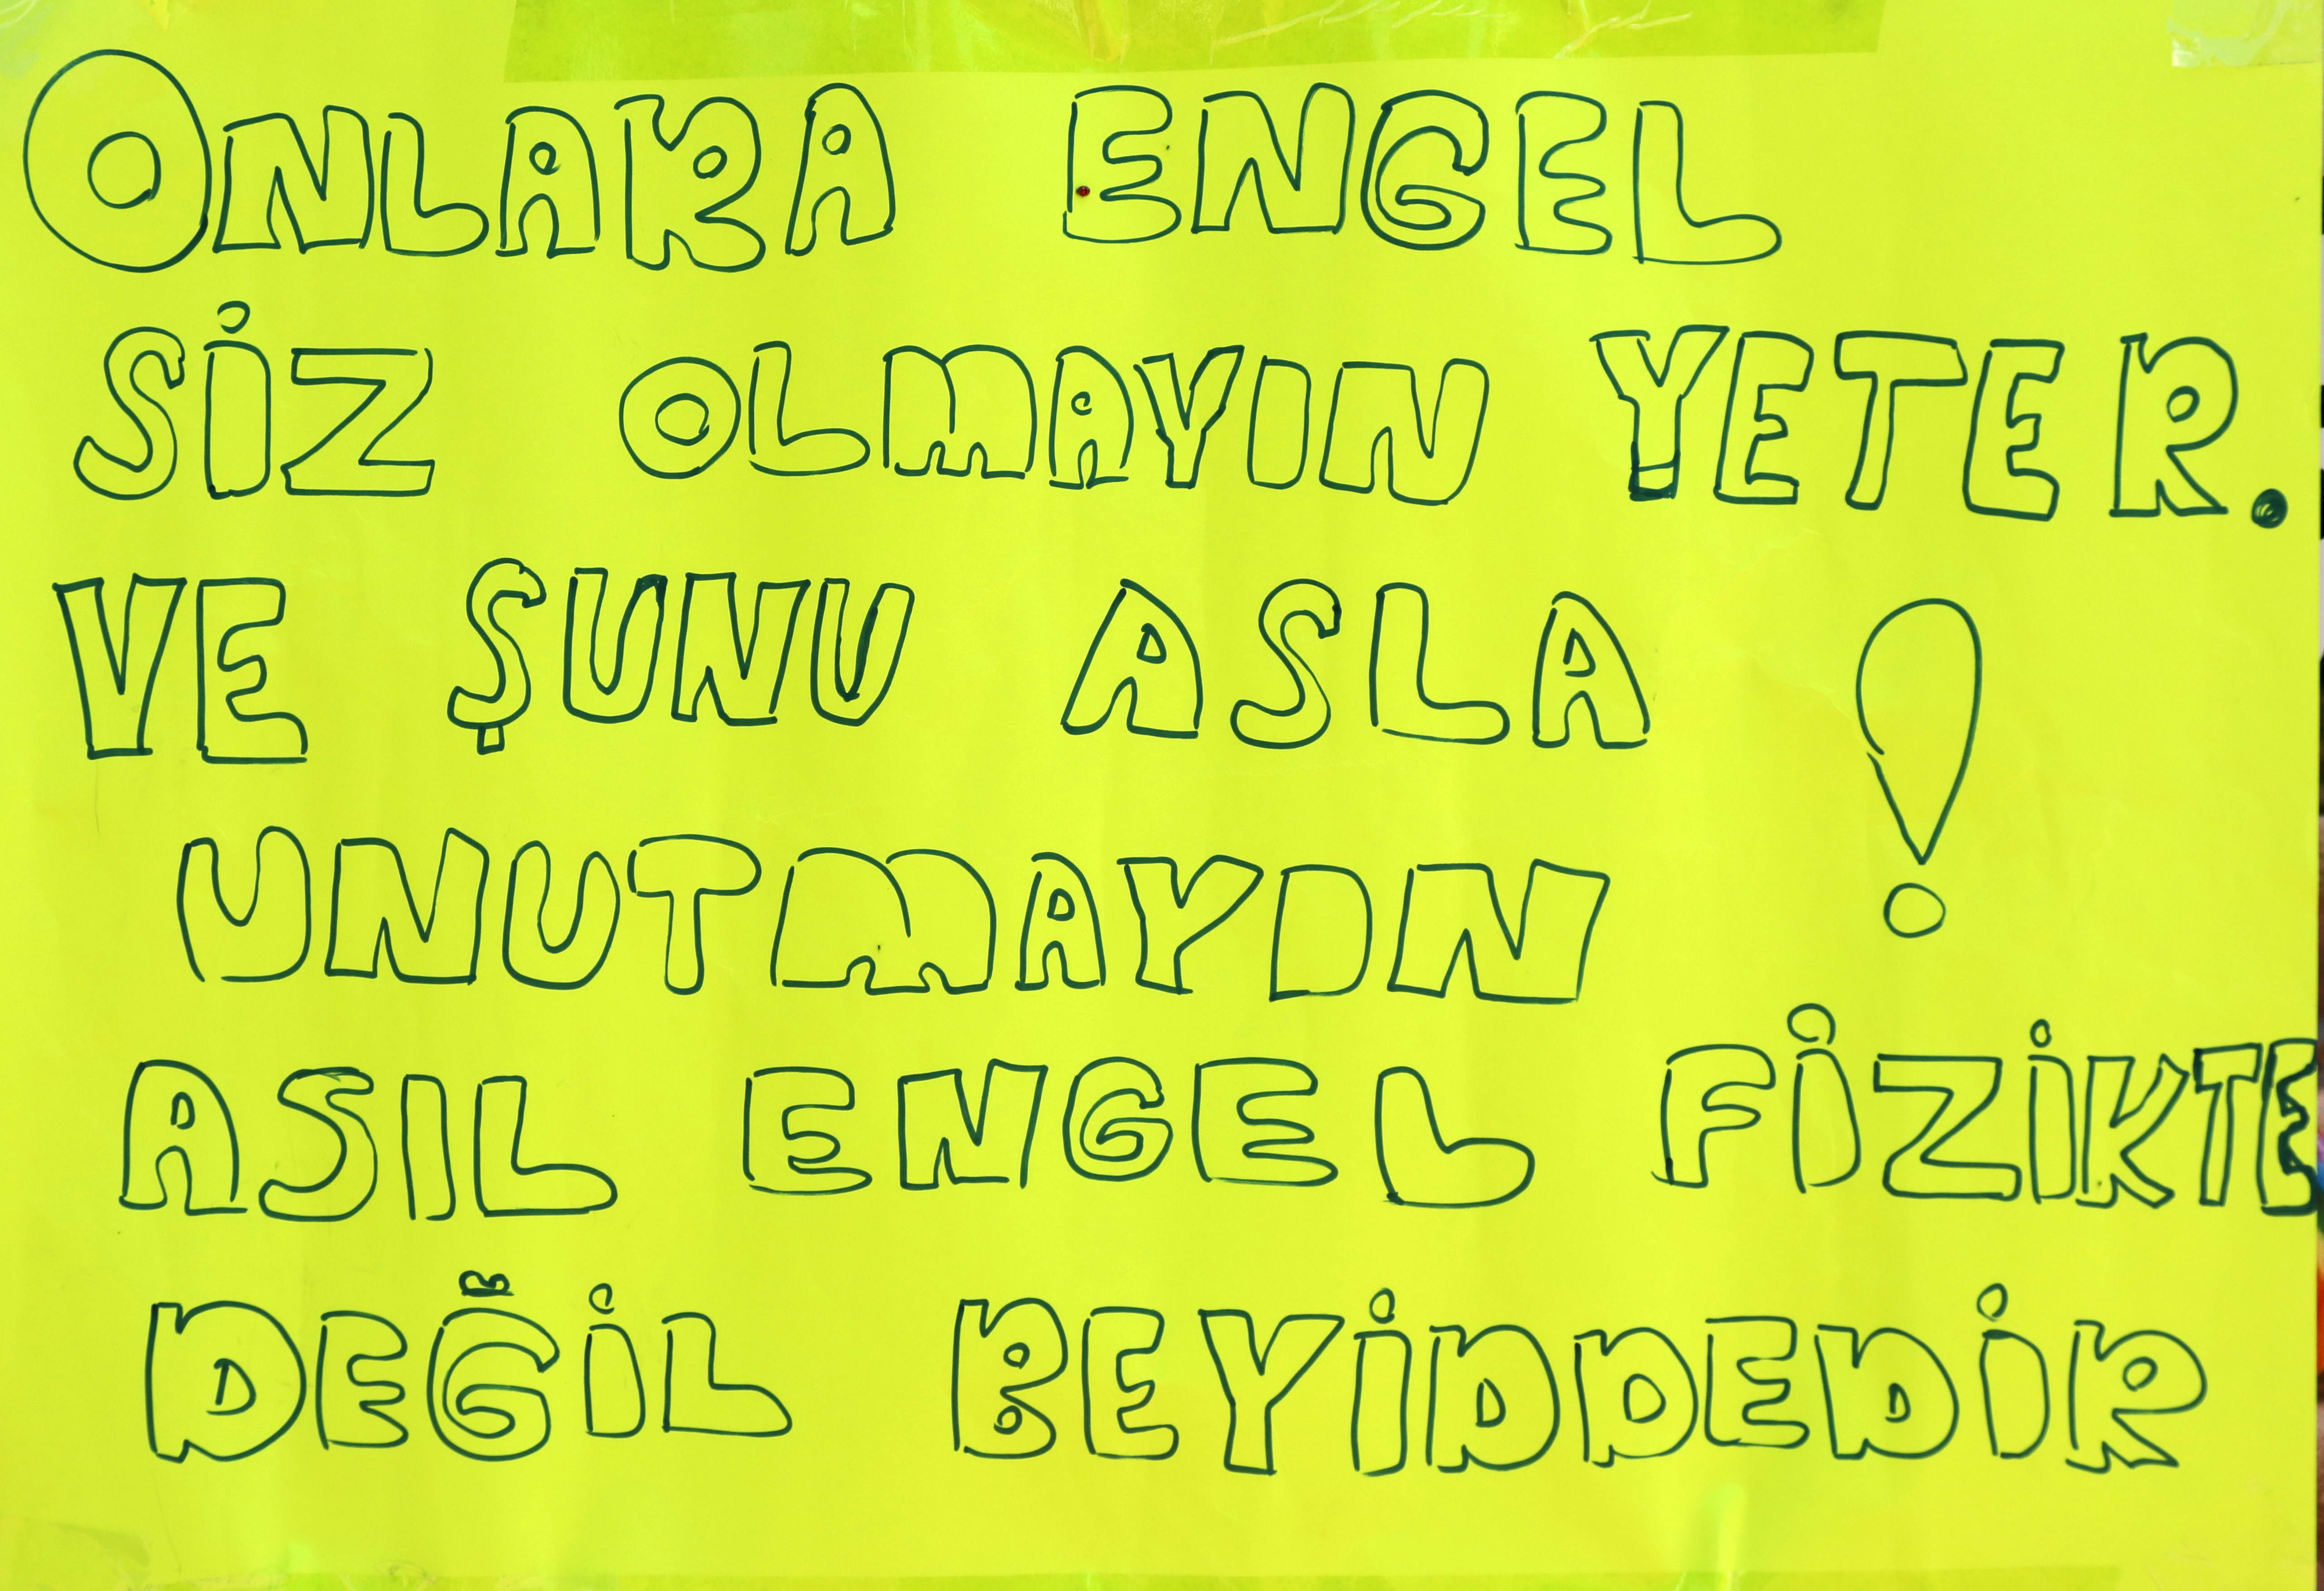 ONLARA ENGEL
SİZ OLMAYIN YETER.
VE ŞUNU ASLA
UNUTMAYIN !
ASIL ENGEL FİZİKTE
DEĞİL BEYİDDEDİR